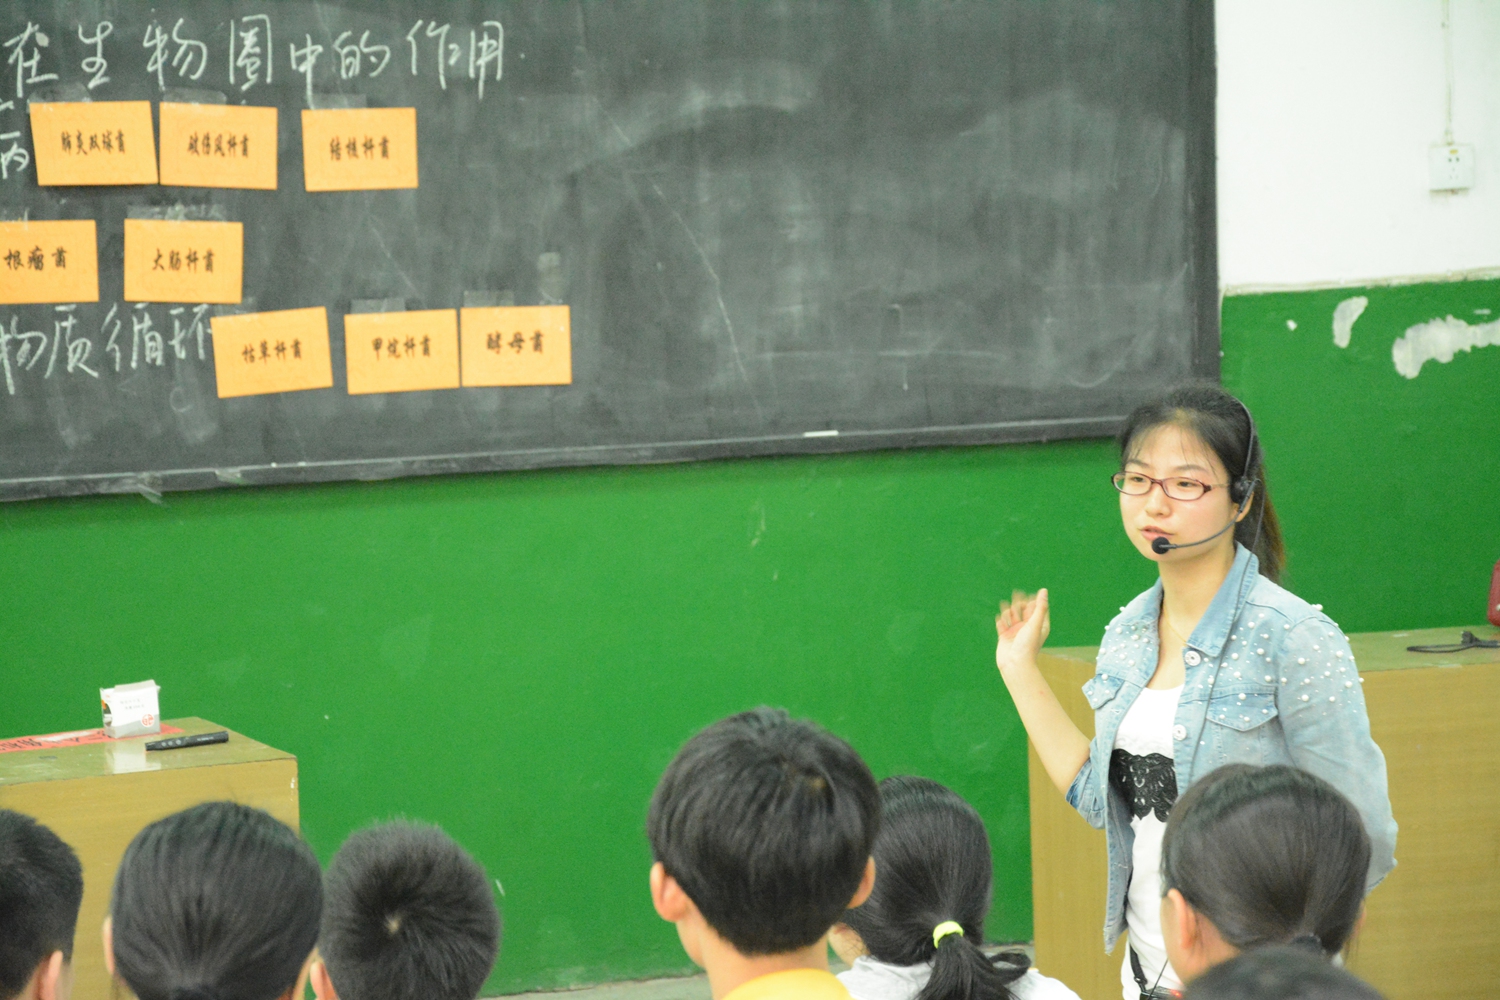 在生物圈中的作用
病 肺炎双球菌 破伤风杆菌 结核杆菌
根瘤菌 大肠杆菌
物质循环 枯草杆菌 甲烷杆菌 酵母菌